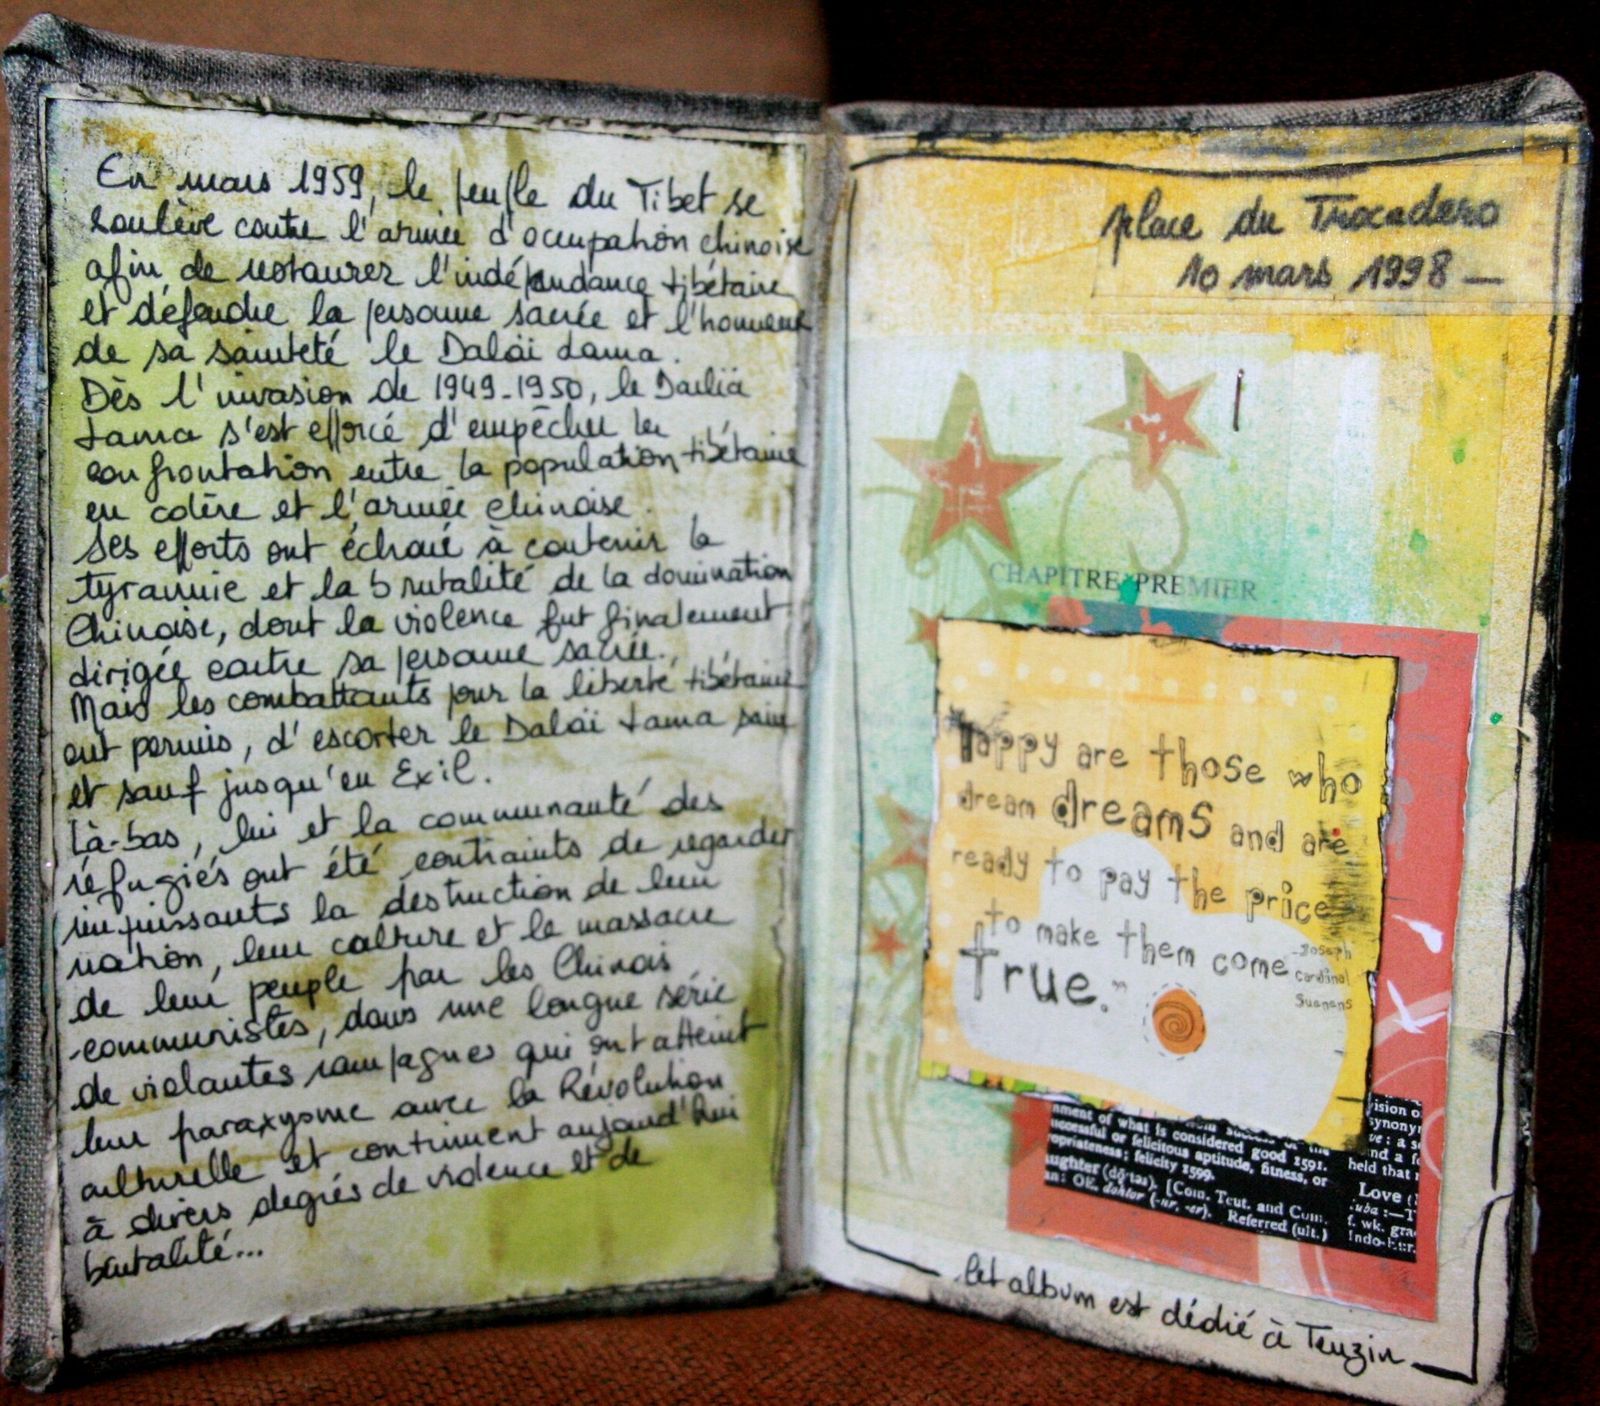 En mars 1959, le peuple du Tibet se
soulève contre l'armée d'occupation chinoise
afin de restaurer l'indépendance tibétaine
et défendre la personne sacrée et l'honneur
de sa sainteté le Dalaï Lama.
Dès l'invasion de 1949-1950, le Dailïa
Lama s'est efforcé d'empêcher la
confrontation entre la population tibétaine
en colère et l'armée chinoise.
Ses efforts ont échoué à contenir la
tyrannie et la brutalité de la domination
Chinoise, dont la violence fut finalement
dirigée contre sa personne sacrée.
Mais les combattants pour la liberté tibétaine
ont permis, d'escorter le Dalaï Lama sain
et sauf jusqu'en Exil.
Là-bas, lui et la communauté des
réfugiés ont été contraints de regarder
impuissants la destruction de leur
nation, leur culture et le massacre
de leur peuple par les Chinois
communistes, dans une longue série
de violantes campagnes qui ont atteint
leur paraxysme avec la Révolution
culturelle et continuent aujourd'hui
à divers degrés de violence et de
brutalité...
place du Trocadero
10 mars 1998 —
CHAPITRE PREMIER
Happy are those who
dream dreams and are
ready to pay the price
to make them come
True."
-Joseph
Cardinal
Suenens
nment of what is considered good 1591.
uccessful or felicitous aptitude, fitness, or
opriateness; felicity 1599.
aughter [Com. Teut. and Com.
n: OE. dohtor (-ur, -er). Referred (ult.)
vision o
synonyn
ve: a s
and a f
held that
Love
uba :—T
f. wk. gra
Indo-Eur.
Cet album est dédié à Tenzin